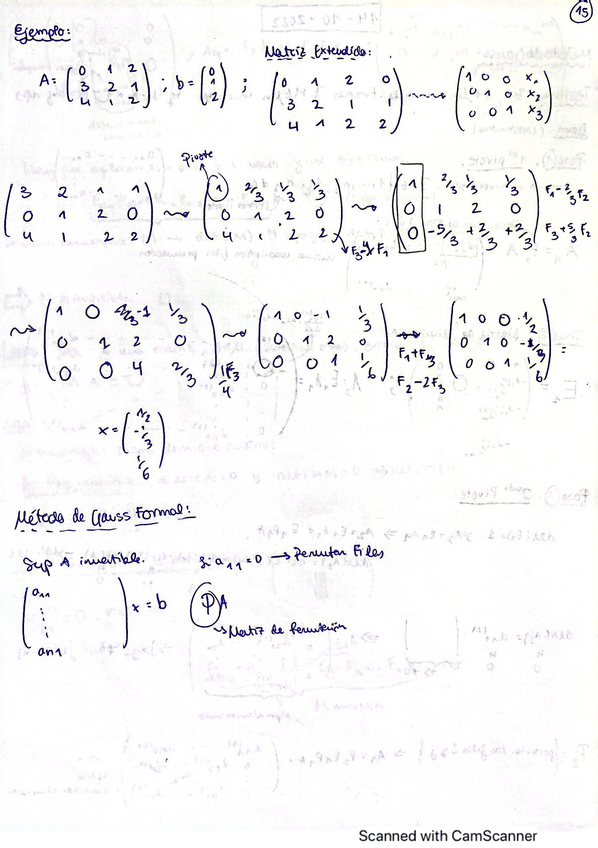 15
Ejemplo:
Matriz Extendida:
A = (0 1 2; 3 2 1; 4 1 2) ; b = (0; 1; 2) ; (0 1 2 0; 3 2 1 1; 4 1 2 2) ⇝ (1 0 0 x₁; 0 1 0 x₂; 0 0 1 x₃)
Pivote
(3 2 1 1; 0 1 2 0; 4 1 2 2) ⇝ (1 2/3 1/3 1/3; 0 1 2 0; 4 1 2 2) ⇝ (1 2/3 1/3 1/3; 0 1 2 0; 0 -5/3 +2/3 +2/3) F₁-2/3F₂
F₃+5/3 F₂
F₃-4F₁
⇝ (1 0 -1 1/3; 0 1 2 0; 0 0 4 2/3) 1/4F₃ ⇝ (1 0 -1 1/3; 0 1 2 0; 0 0 1 1/6) ⇝ (1 0 0 1/2; 0 1 0 -1/3; 0 0 1 1/6) =
F₁+F₃
F₂-2F₃
x = (1/2; -1/3; 1/6)
Método de Gauss Formal:
Sup A invertible. Si a₁₁=0 → Permutar Filas
(a₁₁ ⋮ an1) x = b PA
→ Matriz de Permutación
Scanned with CamScanner